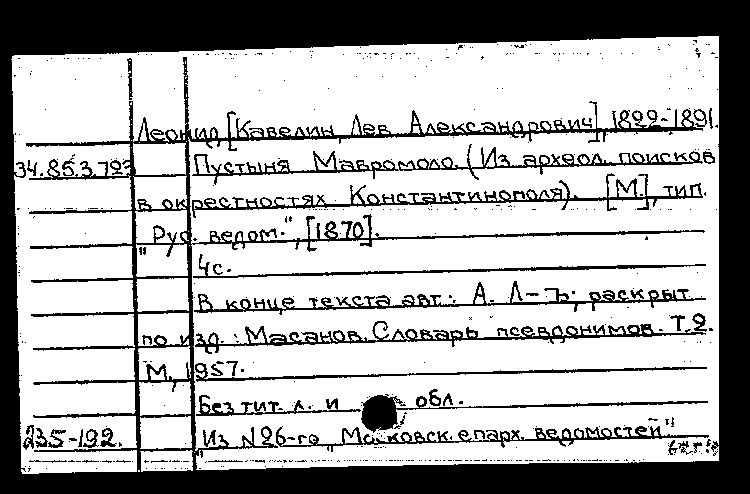 Леонид, [Кавелин, Лев Александрович], 1822-1891.
34.85.3.723 Пустыня Мавромоло. (Из археол. поисков
в окрестностях Константинополя). [М.], тип.
"Рус. ведом.", [1870].
4с.
В конце текста авт.: А. Л-ъ; раскрыт
по изд.: Масанов. Словарь псевдонимов. Т.2.
М., 1957.
Без тит. л. и обл.
235-192. "Из №26-го "Московск. епарх. ведомостей"